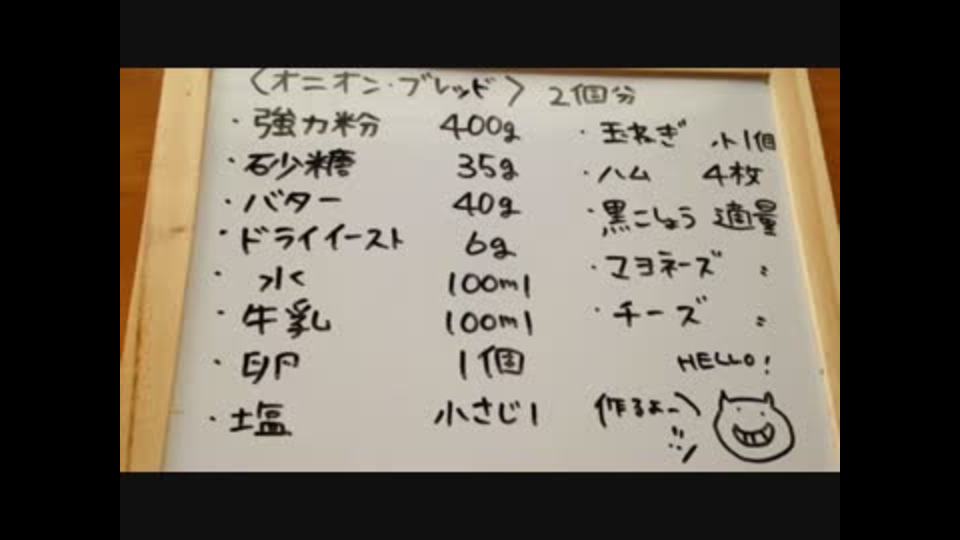 〈オニオン・ブレッド〉 2個分
・強力粉 400g
・砂糖 35g
・バター 40g
・ドライイースト 6g
・水 100ml
・牛乳 100ml
・卵 1個
・塩 小さじ1
・玉ねぎ 小1個
・ハム 4枚
・黒こしょう 適量
・マヨネーズ 〃
・チーズ 〃
HELLO!
作るよー